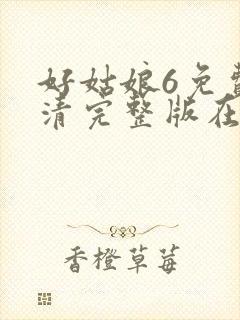 好姑娘6免费
清完整版在
香橙草莓